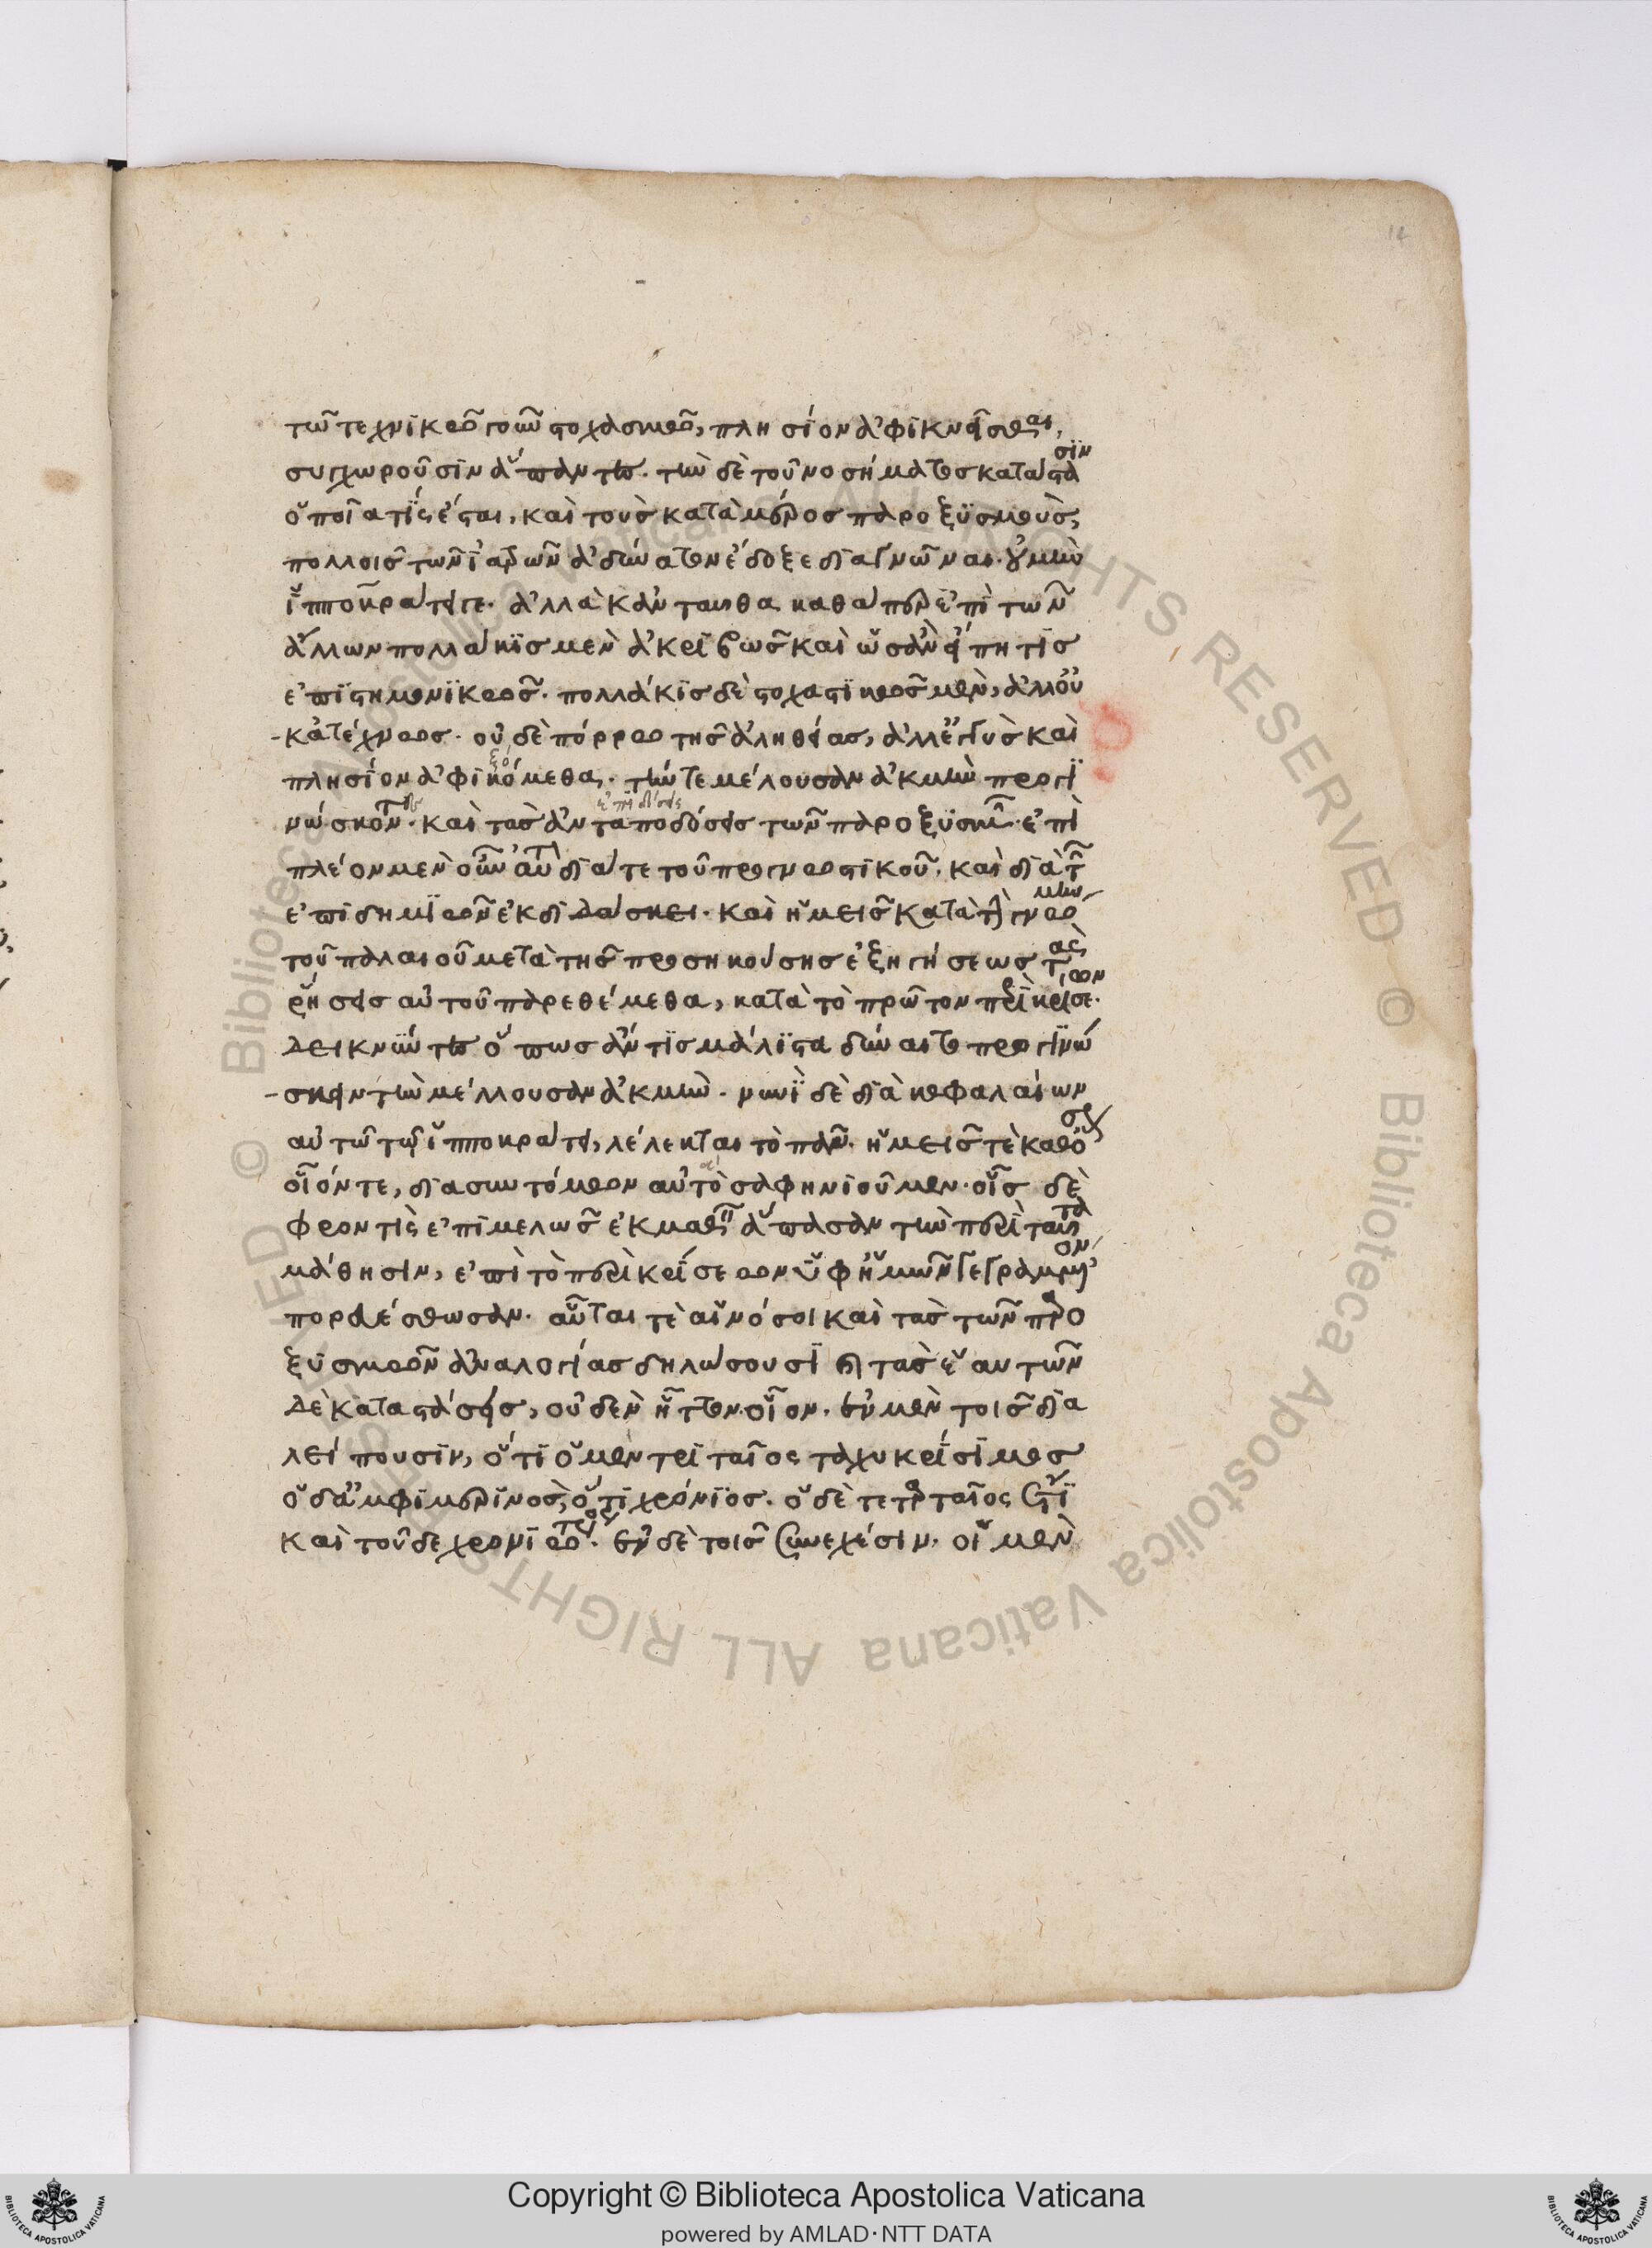 14
τῶ τεχνικῶ γοῦν στοχασμῶ, πλησίον ἀφικνεῖσθαι,
συγχωροῦσιν ἅπαντες. τὴν δὲ τοῦ νοσήματος κατάστασιν
ὁποῖα τίς ἔσται, καὶ τοὺς κατὰ μέρος παροξυσμοὺς,
πολλοῖς τῶν ἰατρῶν ἀδύνατον ἔδοξε διαγνῶναι. οὐ μὴν
ἱπποκράτει γε. ἀλλὰ κἀνταῦθα καθάπερ ἐπὶ τῶν
ἄλλων πολλάκις μὲν ἀκριβῶς καὶ ὡς ἂν εἴπη τις
ἐπιστημονικῶς. πολλάκις δὲ στοχαστικῶς μὲν, ἀλλ' οὐκ
ἀτέχνως. οὐδὲ πόρρω τῆς ἀληθείας, ἀλλ' ἐγγὺς καὶ
πλησίον ἀφικόμεθα. τήν τε μέλουσαν ἀκμὴν προγι
νώσκοντες. καὶ τὰς ἀνταποδόσεις τῶν παροξυσμῶν. ἐπὶ
ἐπιδόσεις
πλέον μὲν οὖν αὐτὰ διά τε τοῦ προγνωστικοῦ. καὶ διὰ τῶν
ἐπιδημιῶν ἐκδιδάσκει. καὶ ἡμεῖς κατὰ τὴν γνώμην
τοῦ παλαιοῦ μετὰ τῆς προσηκούσης ἐξηγήσεως τὰς
ῥήσεις αὐτοῦ παρεθέμεθα, κατὰ τὸ πρῶτον περὶ κρίσεων.
δεικνύντες ὅπως ἄν τις μάλιστα δύναιτο προγινώ
σκειν τὴν μέλλουσαν ἀκμὴν. νυνὶ δὲ διὰ κεφαλαίων
αὐτῶ τῶ ἱπποκράτει, λέλεκται τὸ πᾶν. ἡμεῖς τὲ καθ' ὅσον
οἷόν τε, διὰ συντόμων αὐτὸ σαφηνιοῦμεν. οἷς δὲ
φροντὶς ἐπιμελῶς ἐκμαθεῖν ἅπασαν τὴν περὶ ταῦτα
μάθησιν, ἐπὶ τὸ περὶ κρίσεων ὑφ' ἡμῶν γεγραμμένον
πορευέσθωσαν. αὗται τὲ αἱ νόσοι καὶ τὰς τῶν παρο
ξυσμῶν ἀναλογίας δηλώσουσι καὶ τὰς ἑαυτῶν
δὲ καταστάσεις, οὐδὲν ἧττον. οἷον. ἐν μὲν τοῖς δια
λείπουσιν, ὅτι ὁ μὲν τριταῖος ταχυκρίσιμος
ὁ δ' ἀμφιμερινὸς, ὅτι χρόνιος. ὁ δὲ τεταρταῖος ὅτι
καὶ τοῦδε χρονιώτερος. ἐν δὲ τοῖς συνεχέσιν. οἱ μὲν
Copyright © Biblioteca Apostolica Vaticana
powered by AMLAD·NTT DATA